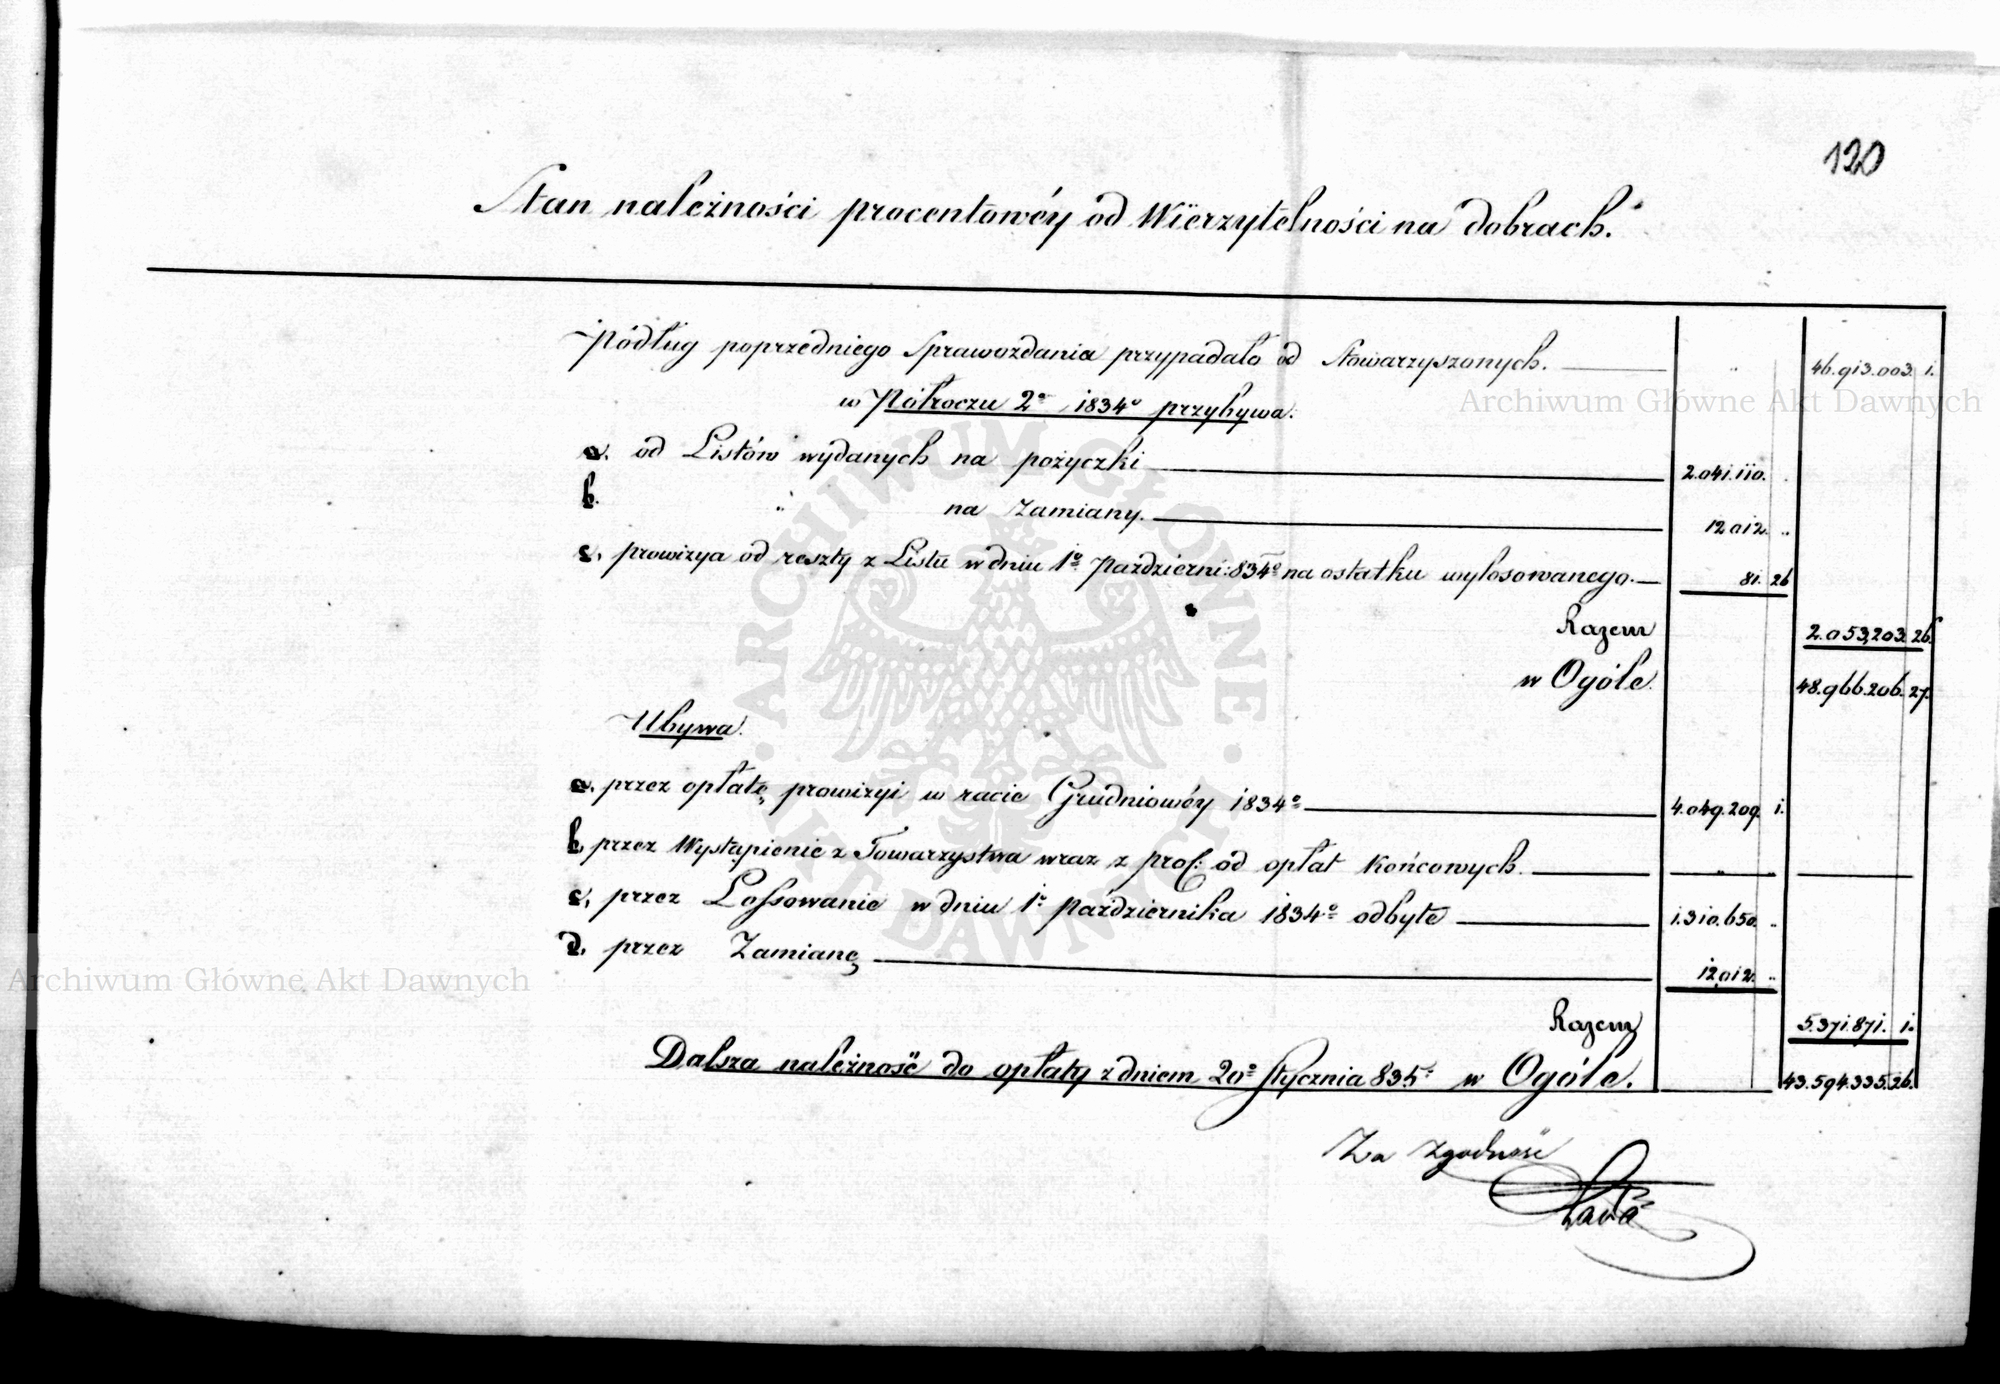 120
Stan należności procentowéy od Wierzytelności na dobrach.
Podług poprzedniego Sprawozdania przypadało od Stowarzyszonych. 46.913.003. 1.
w Półroczu 2o 1834o przybywa.
a. od Listów wydanych na pożyczki 2.041.110. "
b. " na Zamiany. 12.012. "
c. prowizya od reszty z Listu w dniu 1o Październi: 834o na ostatku wylosowanego. 81. 26
Razem 2.053.203. 26.
w Ogóle. 48.966.206. 27.
Ubywa.
a. przez opłatę prowizyi w racie Grudniowéy 1834o 4.049.209. 1.
b. przez Wystąpienie z Towarzystwa wraz z prof: od opłat Końcowych. "
c. przez Lossowanie w dniu 1o Października 1834o odbyte 1.310.650. "
d. przez Zamianę 12.012. "
Razem 5.371.871. 1.
Dalsza należność do opłaty z dniem 20o Stycznia 835. w Ogóle. 43.594.335. 26.
Za zgodność
Archiwum Główne Akt Dawnych
Archiwum Główne Akt Dawnych
ARCHIWUM GŁÓWNE AKT DAWNYCH